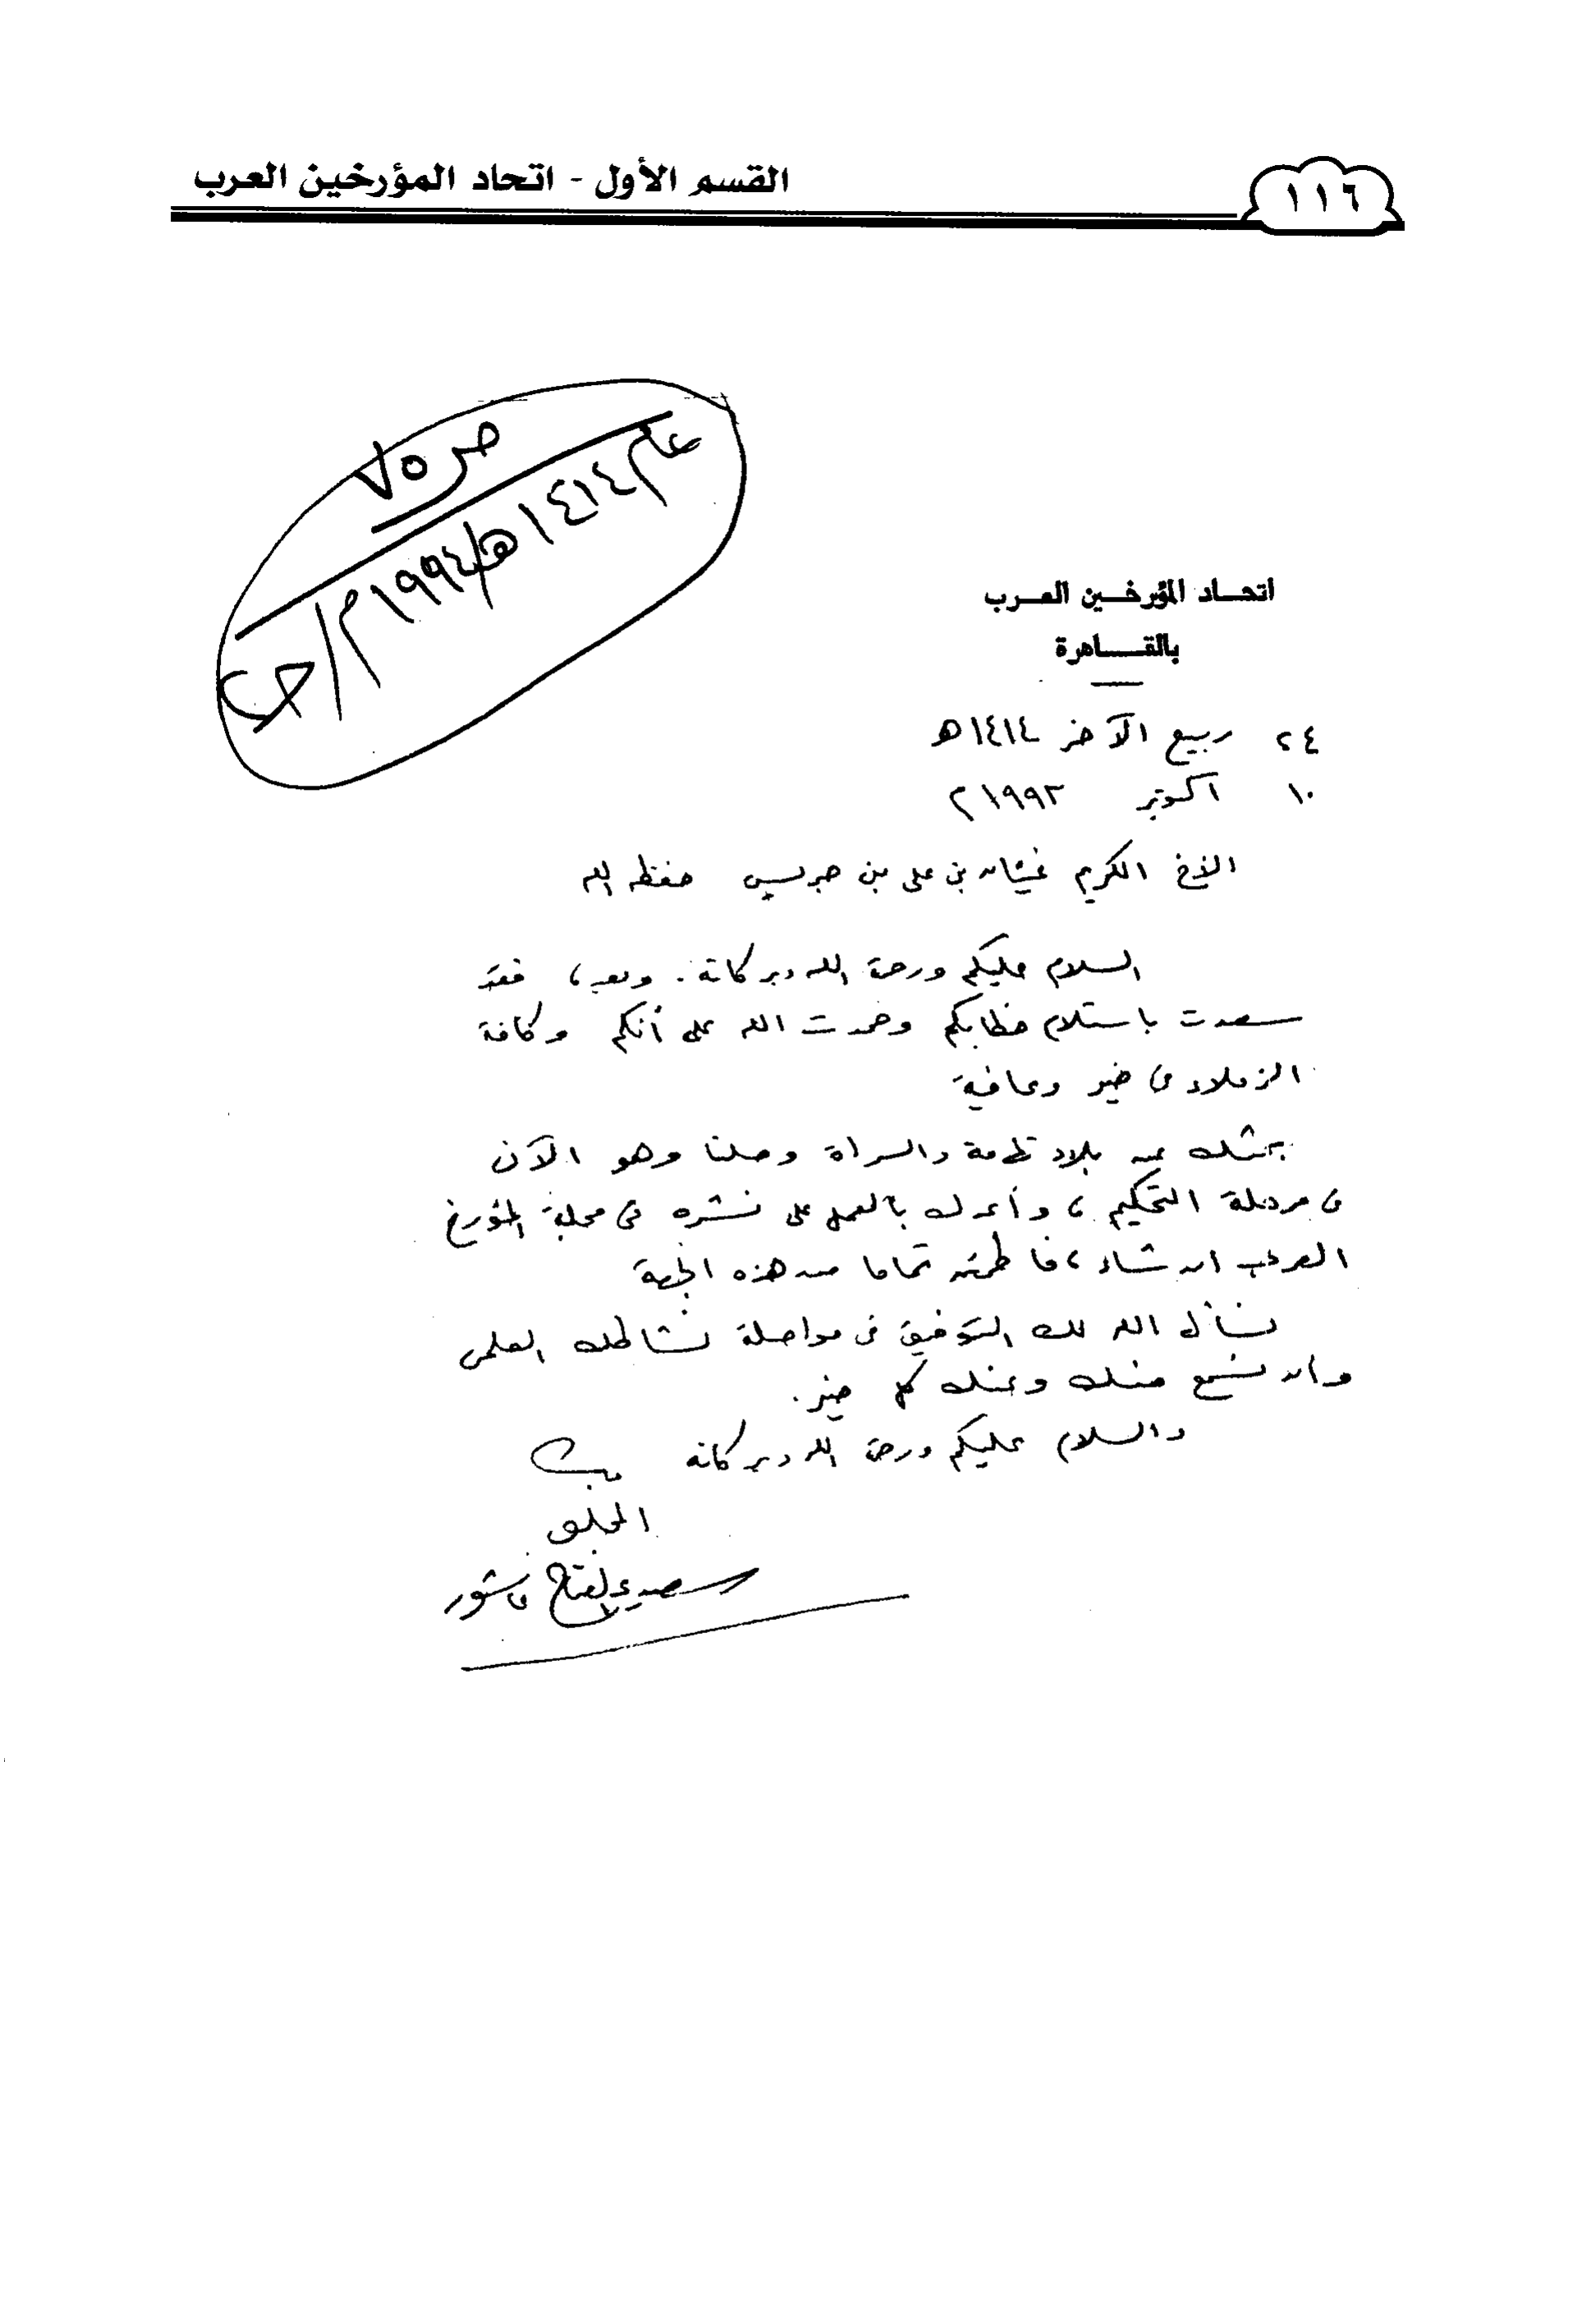 ١١٦
القسم الأول - اتحاد المؤرخين العرب
ص ٧٥
عام ١٤١٤هـ/١٩٩٤م/ح٤
اتحـاد المؤرخـين العـرب
بالقـاهرة
٢٤ ربيع الآخر ١٤١٤هـ
١٠ أكتوبر ١٩٩٣م
الأخ الكريم غيثان بن على بن جريس حفظه الله
السلام عليكم ورحمة الله وبركاته. وبعد، فقد
سعدت باستلام خطابكم وحمدت الله على أنكم وكافة
الزملاء فى خير وعافية
بحثك عن بلاد تهامة والسراة وصلنا وهو الآن
فى مرحلة التحكيم، وأعدك بالعمل على نشره فى مجلة المؤرخ
العربى ان شاء، فاطمئن تماما من هذه الجهة
نسأل الله لك التوفيق فى مواصلة نشاطك العلمى
وأن نسمع منك وعنك كل خير.
والسلام عليكم ورحمة الله وبركاته
المخلص
سعيد عبد الفتاح عاشور